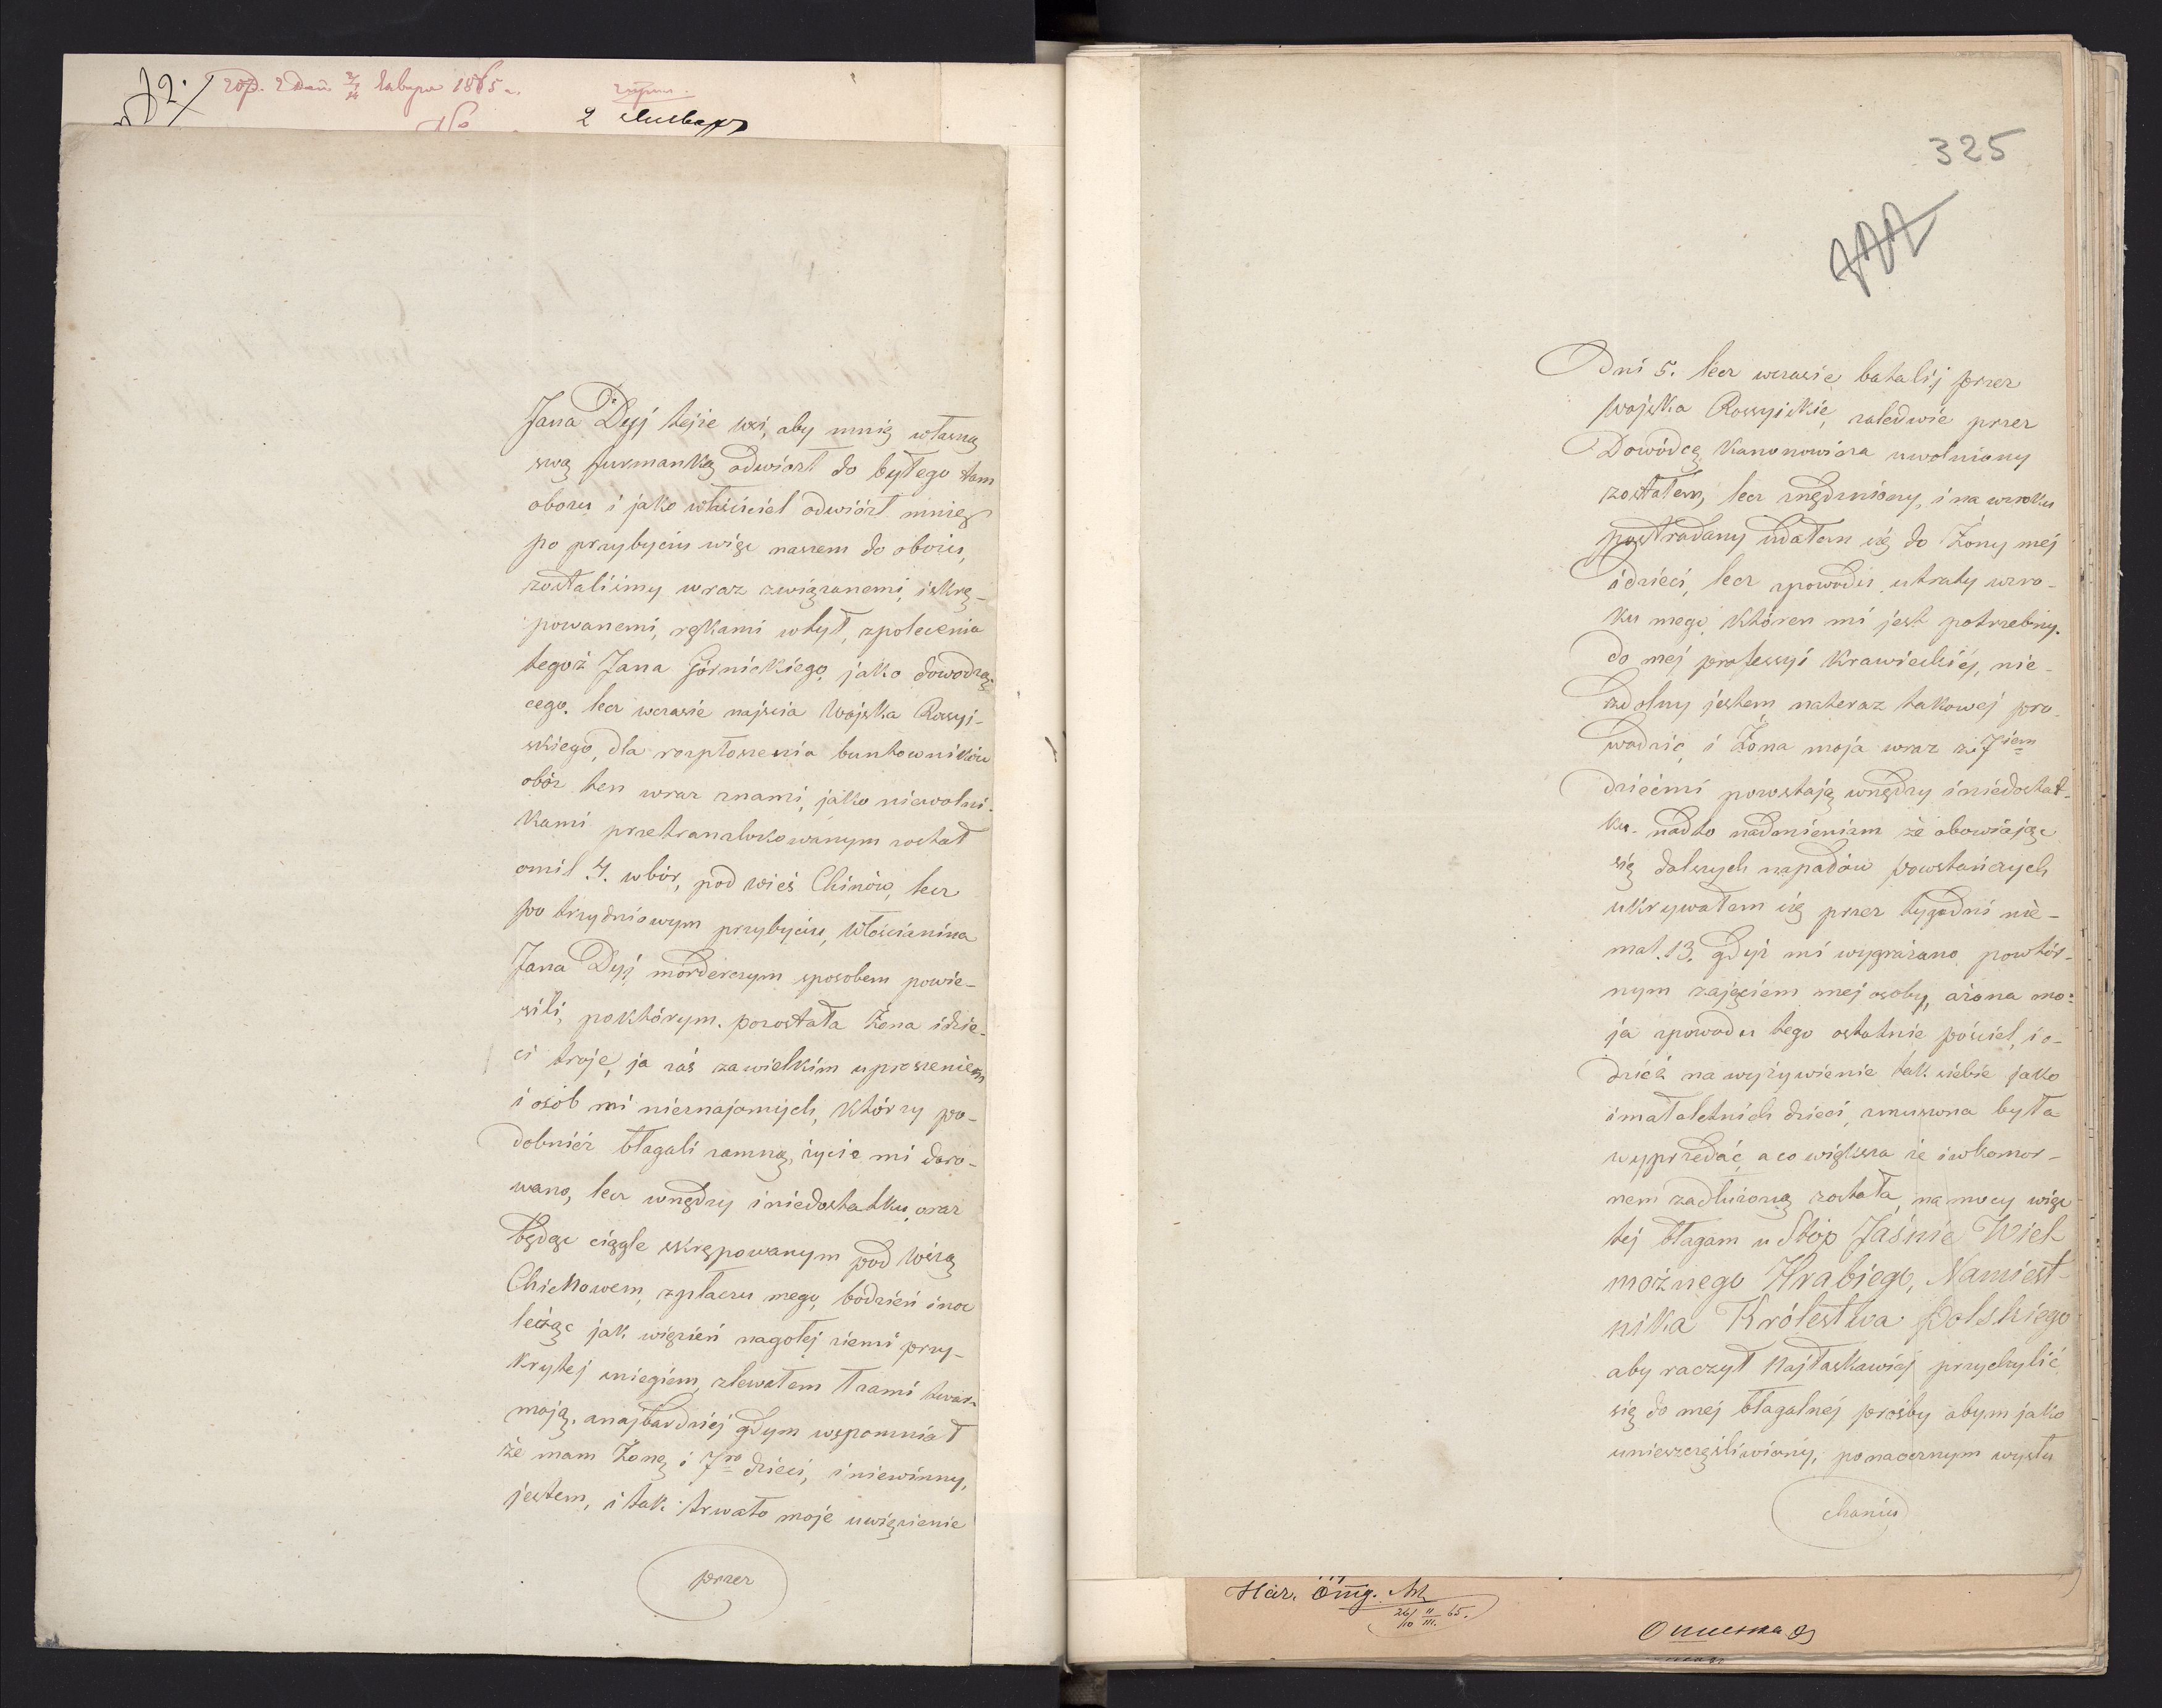 2 Января
Jana Dyj tejże wsi, aby mnię własną
swą furmanką odwiozł do byłego tam
obozu i jako właściciel odwiózł mnię,
po przybyciu więc naszem do obozu,
zostaliśmy wraz związanemi, iskrę-
powanemi, rękami wtył, zpolecenia
tegoż Jana Górnickiego, jako dowodzą-
cego. lecz wczasie najścia Wojska Rossyj-
skiego, dla rozpłoszenia buntowników
obóz ten wraz znami, jako niewolni-
kami przetranzlokowanym został
omil 4. wbór, pod wieś Chinów, lecz
po trzydniowym przybyciu, Włościanina
Jana Dyj morderczym sposobem powie-
sili, poktórym. pozostała Żona idzie-
ci troje, ja zaś zawielkim uproszeniem
i osób mi nieznajomych, którzy po-
dobnież błagali zamną, życie mi daro-
wano, lecz wnędzy iniedostatku, oraz
będąc ciągle skrępowanym pod wieżą
zpłaczu mego, bodzień inoc
leżąc jak więzień nagołej ziemi przy-
krytej śniegiem, zlewałem łzami twarz
moją. anajbardziej gdym wspomniał
że mam Żonę i 7ro dzieci, iniewinny,
jestem, i tak trwało moje uwięzienie
przez
325
Dni 5. lecz wczasie batalij przez
Wojska Rossyiskie, zaledwie przez
Dowódcę uwolniony
zostałem, lecz znędzniony, i na wzroku
postradany udałem się do Żony mej
idzieci, lecz zpowodu utraty wzro-
ku mego, któren mi jest potrzebny.
do mej professyi Krawieckiej, nie-
zdolny jestem nateraz takowej pro-
wadzić, i Żona moja wraz z 7iem
dziećmi pozostają wnędzy iniedostat-
ku. nadto nadmieniam że obowiając
się dalszych napadów powstańczych
ukrywałem się przez tygodni nie-
mal. 13. gdyż mi wygrażano powtór-
nym zajęciem mej osoby, ażona mo-
ja zpowodu tego ostatnie pościel, i o-
dzież na wyżywienie tak siebie jako
imałoletnich dzieci, zmuszona była
wyprzedać, a co większa że iwkomor-
nem zadłużoną została, na mocy więc
tej błagam u Stóp Jaśnie Wiel
możnego Hrabiego, Namiest-
nika Królestwa Polskiego
aby raczył Najłaskawiej przychylić
się do mej błagalnej prośby abym jako
unieszczęśliwiony, ponaocznym wysłu
chaniu